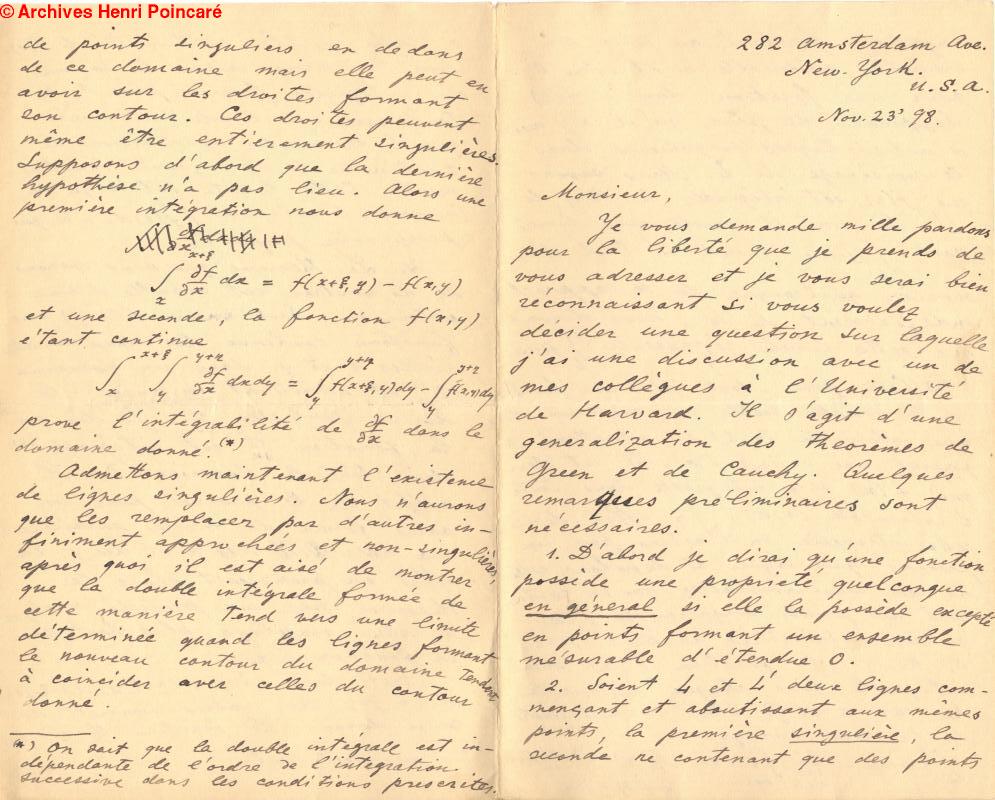 © Archives Henri Poincaré
de points singuliers en dedans
de ce domaine mais elle peut en
avoir sur les droites formant
son contour. Ces droites peuvent
même être entierement singulières.
Supposons d'abord que la dernière
hypothèse n'a pas lieu. Alors une
première intégration nous donne
∫_x^{x+ξ} ∂f/∂x dx = f(x+ξ, y) − f(x, y)
et une seconde, la fonction f(x, y)
étant continue
∫_x^{x+ξ} ∫_y^{y+η} ∂f/∂x dx dy = ∫_y^{y+η} f(x+ξ, y) dy − ∫_y^{y+η} f(x, y) dy
prove l'intégrabilité de ∂f/∂x dans le
domaine donné.(*)
Admettons maintenant l'existence
de lignes singulières. Nous n'aurons
que les remplacer par d'autres in-
finiment approchées et non-singulières,
après quoi il est aisé de montrer
que la double intégrale formée de
cette manière tend vers une limite
déterminée quand les lignes formant
le nouveau contour du domaine tendent
à coincider avec celles du contour
donné.
(*) On sait que la double intégrale est in-
dépendante de l'ordre de l'integration
successive dans les conditions prescrites.
282 Amsterdam Ave.
New-York.
U.S.A.
Nov. 23' 98.
Monsieur,
Je vous demande mille pardons
pour la liberté que je prends de
vous adresser et je vous serai bien
réconnaissant si vous voulez
décider une question sur laquelle
j'ai une discussion avec un de
mes collègues à l'Université
de Harvard. Il s'agit d'une
generalization des theorèmes de
Green et de Cauchy. Quelques
remarques préliminaires sont
nécessaires.
1. D'abord je dirai qu'une fonction
possède une proprieté quelconque
en géneral si elle la possède excepté
en points formant un ensemble
mésurable d'étendue 0.
2. Soient L et L' deux lignes com-
mençant et aboutissant aux mêmes
points, la première singulière, la
seconde ne contenant que des points